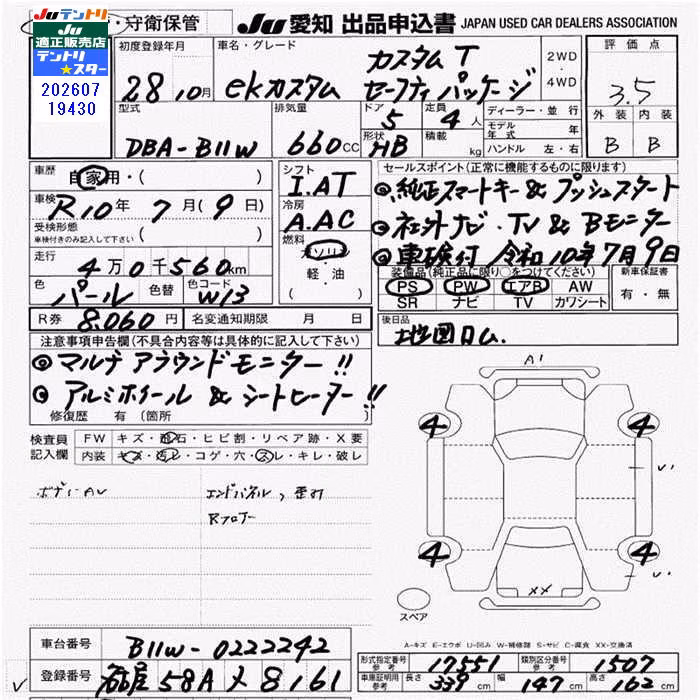 Juテントリ
Ju
適正販売店
テントリ
スター
202607
19430
・守衛保管
Ju 愛知 出品申込書 JAPAN USED CAR DEALERS ASSOCIATION
初度登録年月
28 10月
車名・グレード
ekカスタム
カスタム T
セーフティパッケージ
2WD
4WD
評価点
3.5
外装 内装
B B
型式
DBA-B11W
排気量
660cc
ドア
5
定員
4人
形状
HB
積載
kg
ディーラー・並行
モデル年式 年
ハンドル 左・右
車歴
自家用・( )
車検
R10年 7月(9日)
受検形態
車検付きのみ記入して下さい ( )
走行
4万0千560km
色
パール
色替
色コード
W13
シフト
I.AT
冷房
A.AC
燃料
ガソリン
軽・油
セールスポイント(正常に機能するものに限ります)
◎純正スマートキー&プッシュスタート
◎社外ナビ・TV&Bモニター
◎車検付 令和10年7月9日
装備品(純正品に限り○をつけてください)
PS PW エアB AW
SR ナビ TV カワシート
新車保証書
有・無
R券 8.060円 名変通知期限 月 日
後日品
地図ROM.
注意事項申告欄(不具合内容等は具体的に記入して下さい)
◎マルチアラウンドモニター!!
◎アルミホイール&シートヒーター!!
修復歴 有(箇所
検査員
記入欄
FW キズ・飛石・ヒビ割・リペア跡・X要
内装 キズ・汚レ・コゲ・穴・スレ・キレ・破レ
ボディーAU
エンドパネル,歪み
Rフロアー
A1
4 4
V'
4 4
V'
XX
スペア
A-キズ E-エクボ U-凹み W-補修跡 S-サビ C-腐食 XX-交換済
車台番号 B11W-0222242
登録番号 名古屋 58A メ 8161
型式指定番号 参考 17551 類別区分番号 参考 1507
車庫証明用 参考 長さ 339cm 幅 147cm 高さ 162cm